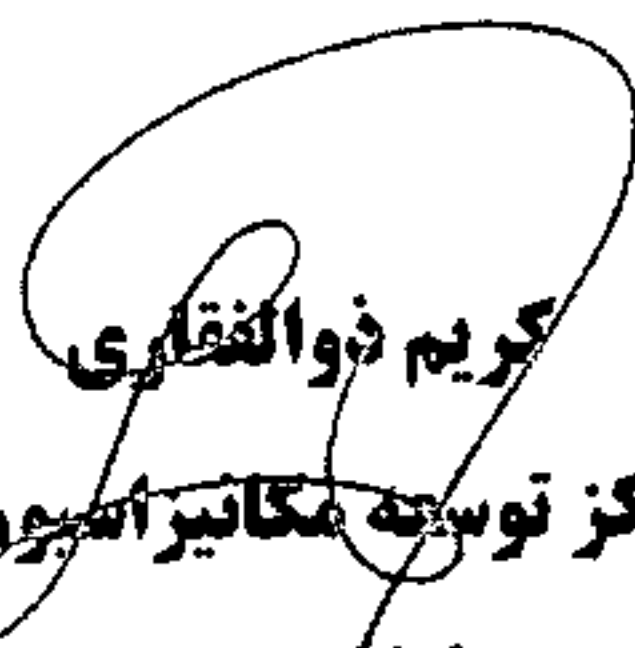 کریم ذوالفقاری
کز توسعه مکانیزاسیون